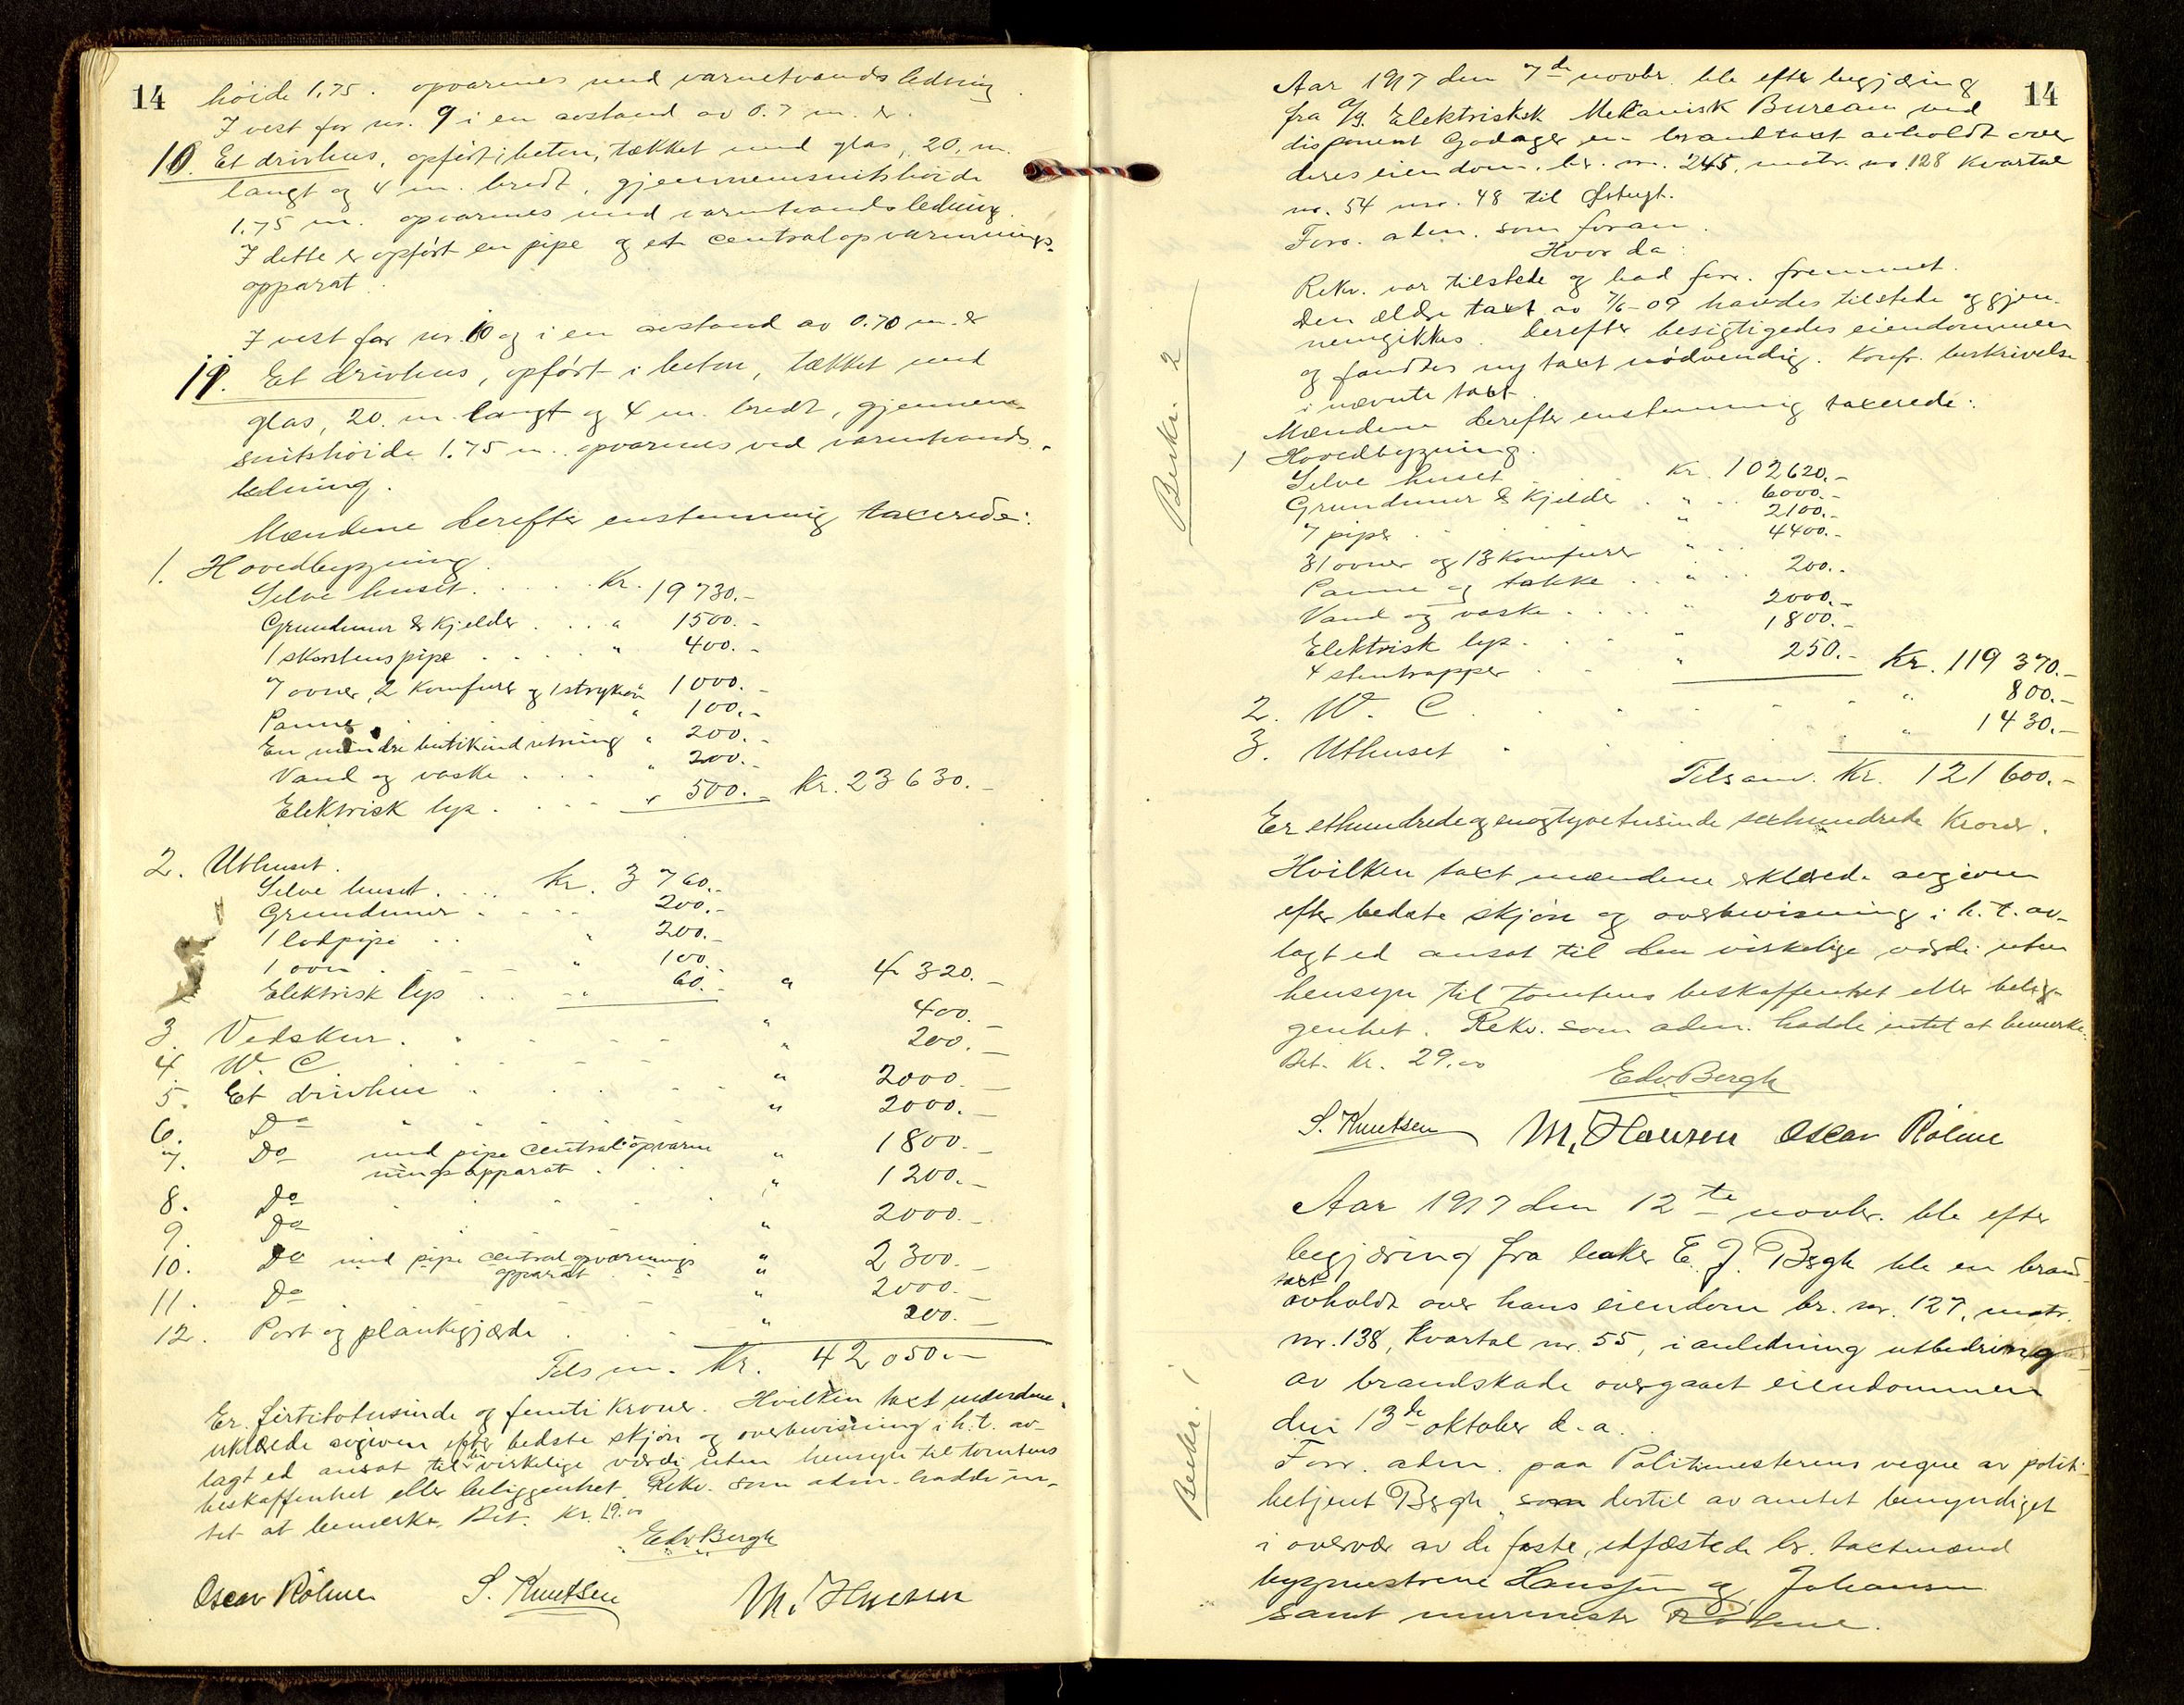 14
høide 1.75. opvarmes med varmtvandsledning.
I vest for nr. 9 i en avstand av 0.7 m. er
10. Et drivhus, opført i beton, tækket med glas, 20. m.
langt og 4 m. bredt, gjennemsnitshøide
1.75 m. opvarmes med varmtvandsledning.
I dette er opført en pipe og et centralopvarmnings-
apparat.
I vest for nr. 10 og i en avstand av 0.70 m. er
11. Et drivhus, opført i beton, tækket med
glas, 20. m. langt og 4 m. bredt, gjennem-
snitshøide 1.75 m. opvarmes ved varmtvands-
ledning.
Mændene derefter enstemmig taxerede:
1. Hovedbygning.
Selve huset. . . . Kr. 19730.-
Grundmur & kjelder . . . " 1500.-
1 skorstenspipe . . . . " 400.-
7 ovner, 2 komfurer og 1 strykeovn " 1000.-
Panne " 100.-
En mindre butikindretning " 200.-
Vand og vaske . . . " 200.-
Elektrisk lys . . . . " 500.- Kr. 23630.-
2. Uthuset.
Selve huset. . . . Kr. 3760.-
Grundmur . . . . 200.-
1 lodpipe . . " 200.-
1 ovn . . . . " 100.-
Elektrisk lys . . . " 60.- " 4320.-
3. Vedskur. . . . . " 400.-
4. W. C. . . . . " 200.-
5. Et drivhus . . . . " 2000.-
6. Do " 2000.-
7. Do med pipe centralopvarm
ningsapparat . . . " 1800.-
8. Do . . . . " 1200.-
9. Do . . . " 2000.-
10. Do med pipe centralopvarmnings
apparat . . " 2300.-
11. Do . . . . " 2000.-
12. Port og plankegjærde . . . " 200.-
Tilsm. Kr. 42050.-
Er firtitotusinde og femti kroner. Hvilken taxt mændene
erklærede avgiven efter bedste skjøn og overbevisning i h. t. av-
lagt ed ansat til den virkelige værdi uten hensyn til tomtens
beskaffenhet eller beliggenhet. Rekv. som adm. hadde in-
tet at bemerke. Bet. Kr. 19.00
Edv Bergh
Oscar Rölme S. Knutsen M. Hansen
14
Aar 1917 den 7de novbr. ble efter begjæring
fra A/S. Elektrisk Mekanisk Bureau ved
disponent Godager en brandtaxt avholdt over
deres eiendom, br. nr. 245, matr. no. 128 kvartal
no. 54 nro. 48 til Østregt.
Forr. adm. som foran.
Hvor da:
Rekv. var tilstede og bad forr. fremmet.
Den ældre taxt av 7/6-09 havdes tilstede og gjen-
nemgikkes. Derefter besigtigedes eiendommen
og fandtes ny taxt nødvendig. Konfr. beskrivelse
i nævnte taxt.
Mændene derefter enstemmig taxerede:
Beskr. 2
1 Hovedbygning.
Selve huset . . . . Kr. 102620.-
Grundmur & kjelder . " . . 6000.-
7 piper . . . . " 2100.-
31 ovner og 13 komfurer " . . 4400.-
Panne og takke . . " . . 200.-
Vand og vaske . . . . " 2000.-
Elektrisk lys . . . " 1800.-
4 stentrapper . . " 250.- Kr. 119370.-
2. W. C. . . . . . " 800.-
3. Uthuset . . . . " 1430.-
Tilsam. Kr. 121600.-
Er ethundredeogenogtyvetusinde sexhundrede Kroner.
Hvilken taxt mændene erklærede avgiven
efter bedste skjøn og overbevisning i h. t. av-
lagt ed ansat til den virkelige værdi uten
hensyn til tomtens beskaffenhet eller belig-
genhet. Rekv. som adm. hadde intet at bemerke.
Bet. Kr. 29.00
Edv. Bergh
S. Knutsen M. Hansen Oscar Rölme
Aar 1917 den 12te novbr. ble efter
begjæring fra baker E. J. Bergh ble en brand-
taxt
avholdt over hans eiendom br. nr. 127, matr.
nr. 138, kvartal nr. 55, i anledning utbedring
av brandskade overgaaet eiendommen
den 13de oktober d. a.
Beskr. 1
Forr. adm. paa Politimesterens vegne av politi-
betjent Bergh, som dertil av amtet bemyndiget
i overvær av de faste, edfæstede br. taxtmænd
bygmestrene Hanssen og Johansen
samt murmester Rølme.